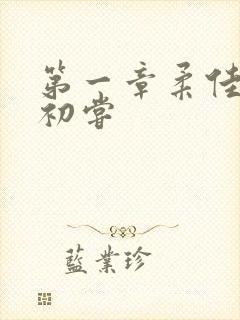 第一章柔佳
初嘗
藍業珍